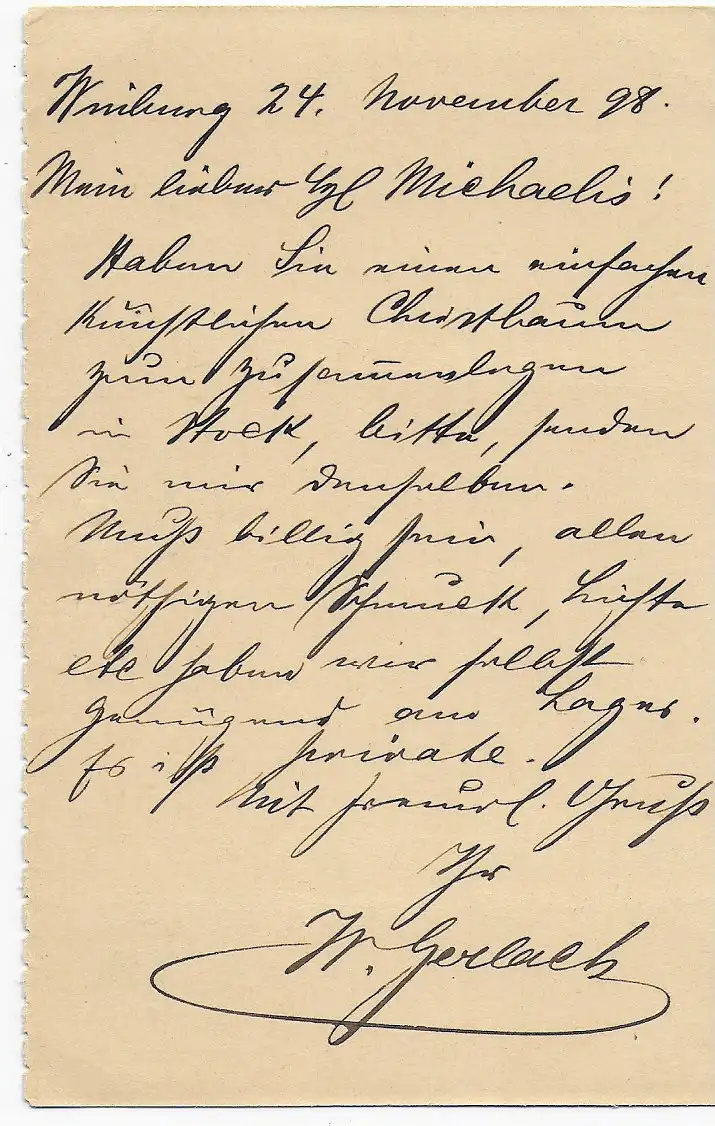 Winburg 24. November 98.
Mein lieber Michaelis!
Haben Sie einen einfachen
künstlichen Christbaum
zum zusammenlegen
in Stock, bitte, senden
Sie mir denselben.
Muß billig sein, allen
nöthigen Schmuck, Lichte
etc haben wir selbst
genügend am Lager.
Es ist private.
Mit freundl. Gruß
Ihr
W. Gerlach